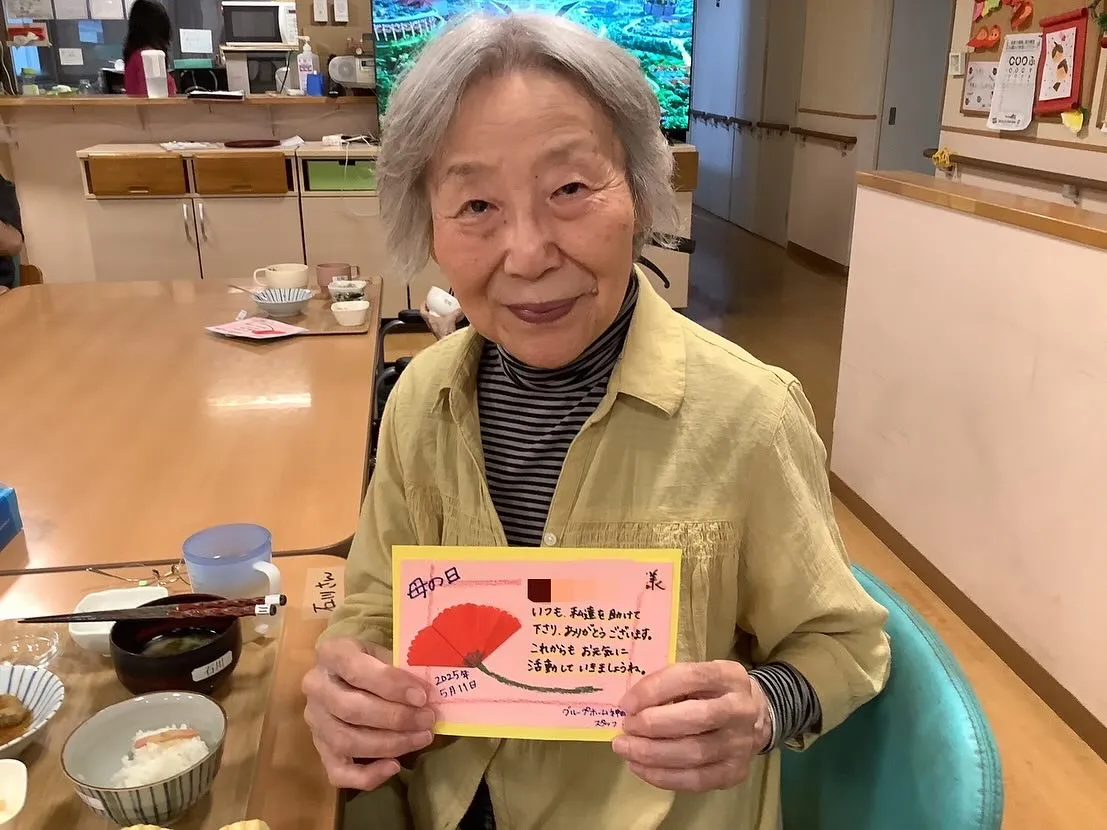 母の日
様
いつも、私達を助けて
下さり、ありがとうございます。
これからもお元気に
活動していきましょうね。
2025年
5月11日
グループホーム
スタッフ
石川さん
石川